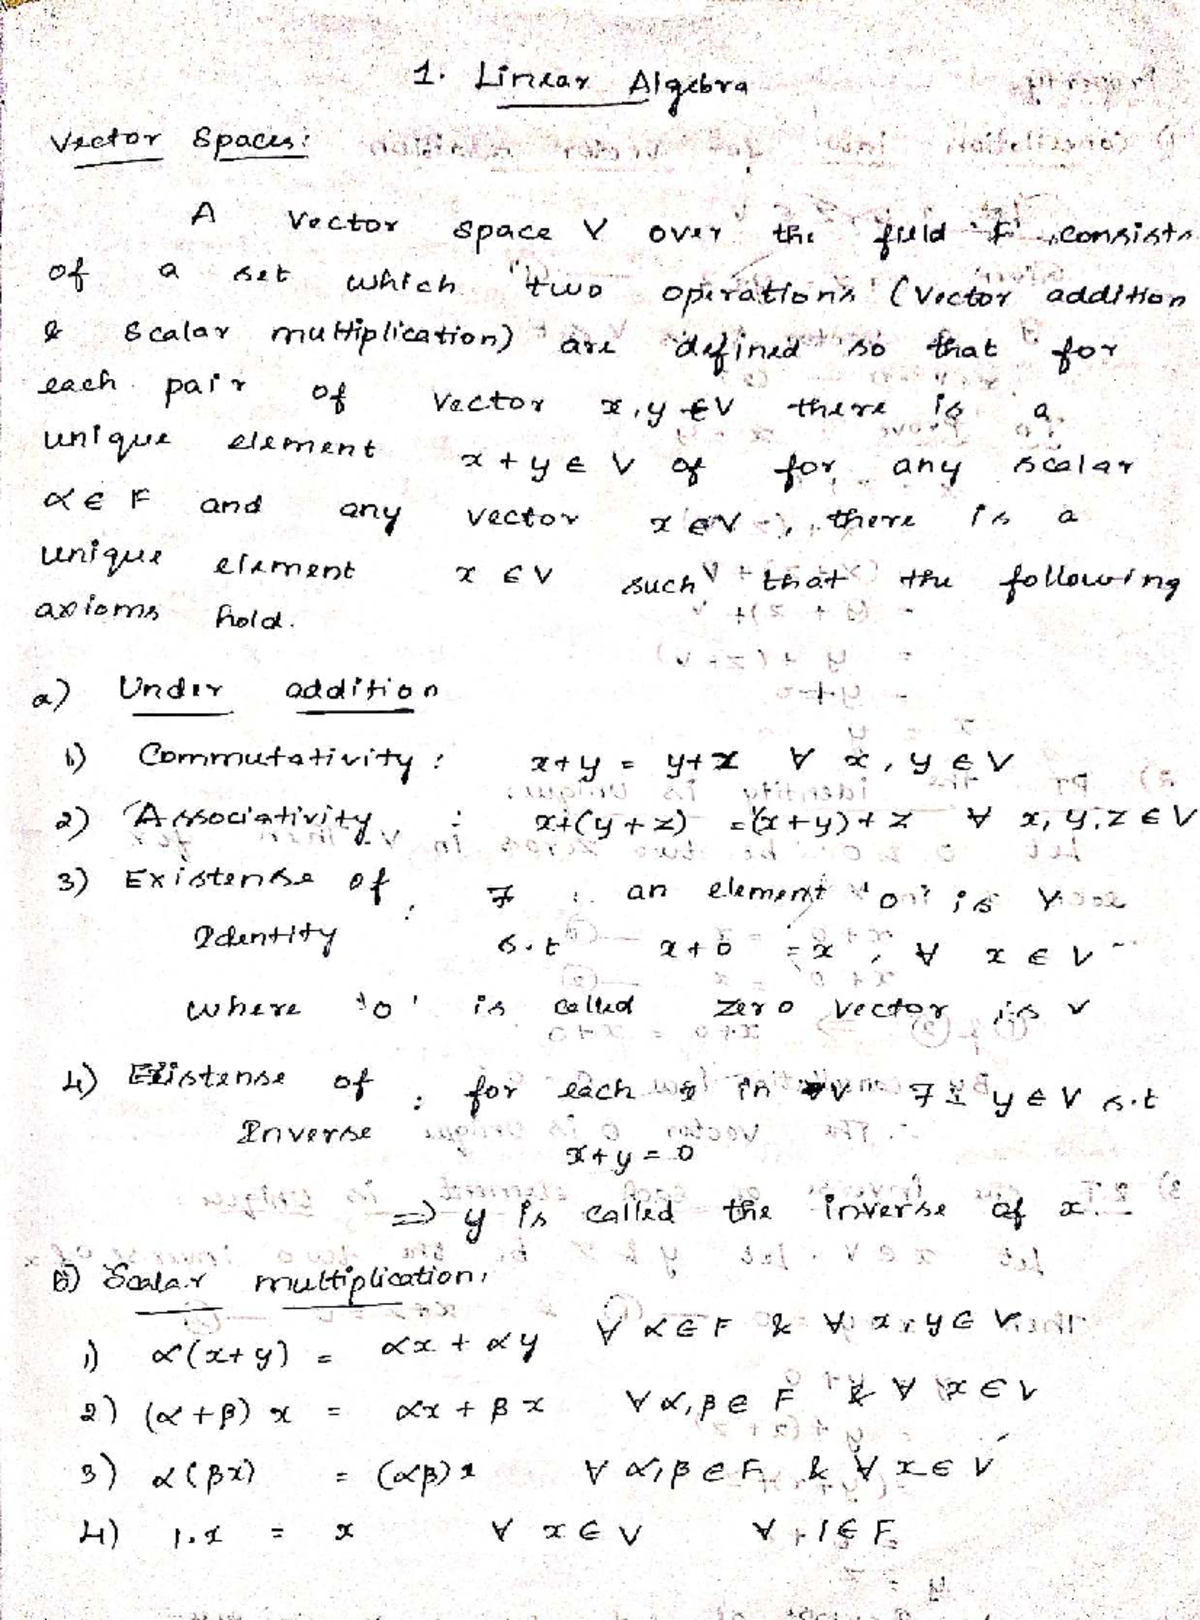 1. Linear Algebra
Vector Spaces:
A vector space V over the field 'F' consists
of a set which two operations (Vector addition
& Scalar multiplication) are defined so that for
each pair of vector x, y ∈ V there is a
unique element x + y ∈ V of for any scalar
α ∈ F and any vector x ∈ V, there is a
unique element x ∈ V such that the following
axioms hold.
a) Under addition
1) Commutativity : x+y = y+x ∀ x, y ∈ V
2) Associativity : x+(y+z) = (x+y)+z ∀ x, y, z ∈ V
3) Existense of : ∃ an element '0' is V
Identity s.t x+0 = x, ∀ x ∈ V
where '0' is called zero vector is V
4) Existense of : for each x in V ∃ y ∈ V s.t
Inverse
x+y = 0
⇒ y is called the inverse of x.
b) Scalar multiplication,
1) α(x+y) = αx + αy ∀ α ∈ F & ∀ x, y ∈ V
2) (α+β) x = αx + βx ∀ α, β ∈ F & ∀ x ∈ V
3) α(βx) = (αβ)x ∀ α, β ∈ F & ∀ x ∈ V
4) 1.x = x ∀ x ∈ V ∀ 1 ∈ F